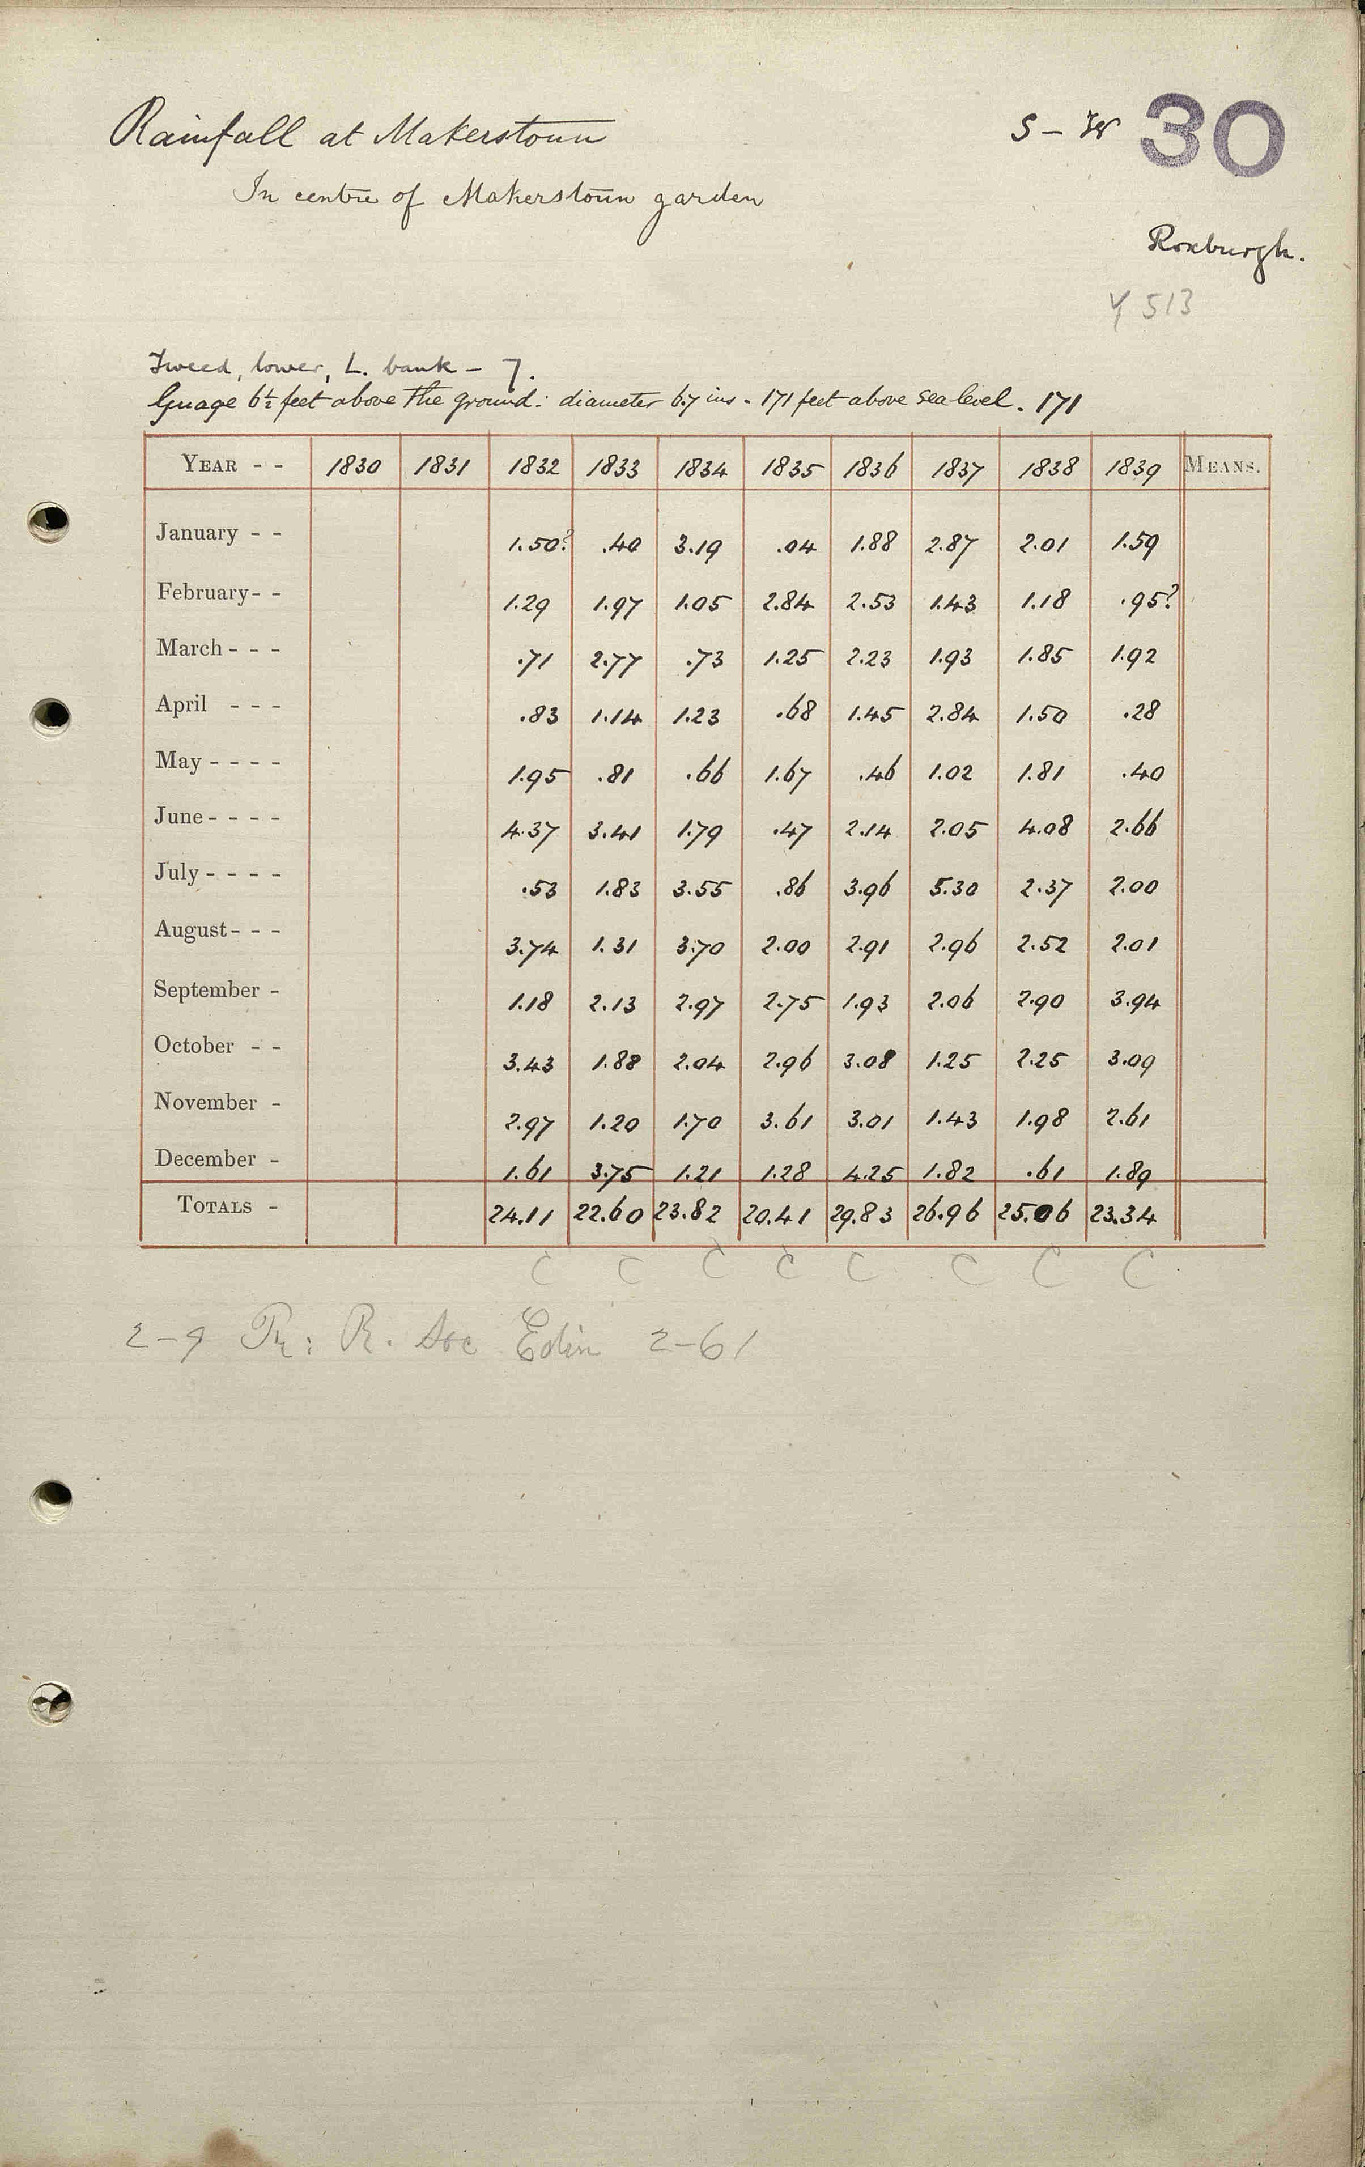 Rainfall at Makerstoun
S - W 30
In centre of Makerstoun garden
Roxburgh.
513
Tweed, lower, L. bank - 7.
Guage 6½ feet above the ground: diameter 6.7 ins. 171 feet above sea level. 171
YEAR - - 1830 1831 1832 1833 1834 1835 1836 1837 1838 1839 MEANS.
January - - 1.50? .40 3.19 .04 1.88 2.87 2.01 1.59
February - - 1.29 1.97 1.05 2.84 2.53 1.43 1.18 .95?
March - - - .71 2.77 .73 1.25 2.23 1.93 1.85 1.92
April - - - .83 1.14 1.23 .68 1.45 2.84 1.50 .28
May - - - - 1.95 .81 .66 1.67 .46 1.02 1.81 .40
June - - - - 4.37 3.41 1.79 .47 2.14 2.05 4.08 2.66
July - - - - .53 1.83 3.55 .86 3.96 5.30 2.37 2.00
August - - - 3.74 1.31 3.70 2.00 2.91 2.96 2.52 2.01
September - 1.18 2.13 2.97 2.75 1.93 2.06 2.90 3.94
October - - 3.43 1.88 2.04 2.96 3.08 1.25 2.25 3.09
November - 2.97 1.20 1.70 3.61 3.01 1.43 1.98 2.61
December - 1.61 3.75 1.21 1.28 4.25 1.82 .61 1.89
TOTALS - 24.11 22.60 23.82 20.41 29.83 26.96 25.06 23.34
C C C C C C C C
2-9 Tr: R. Soc Edin 2-61